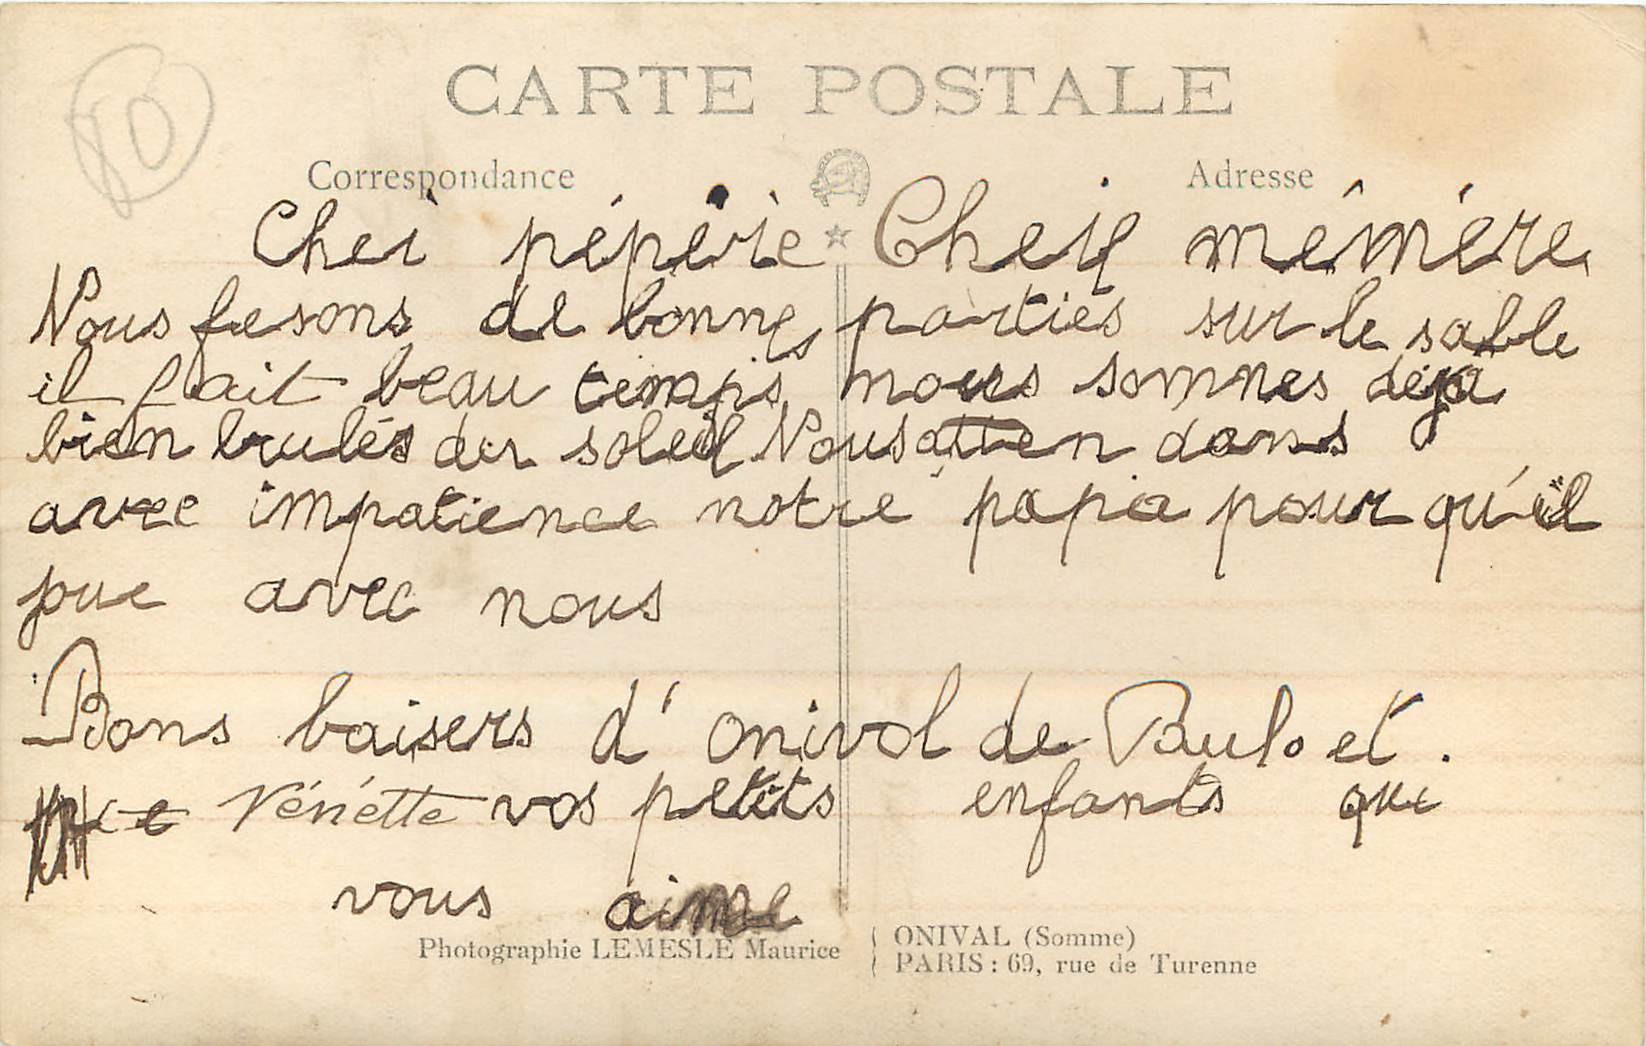 80
CARTE POSTALE
Correspondance
Adresse
Cher pépère Cher mémère
Nous fesons de bonnes parties sur le sable
il fait beau temps nous sommes déjà
bien brulés du soleil Nous atten dans
avec impatience notre papa pour qu'il
joue avec nous
Bons baisers d'onival de Paulo et.
Vénette vos petits enfants qui
vous aime
Photographie LEMESLE Maurice
ONIVAL (Somme)
PARIS : 69, rue de Turenne